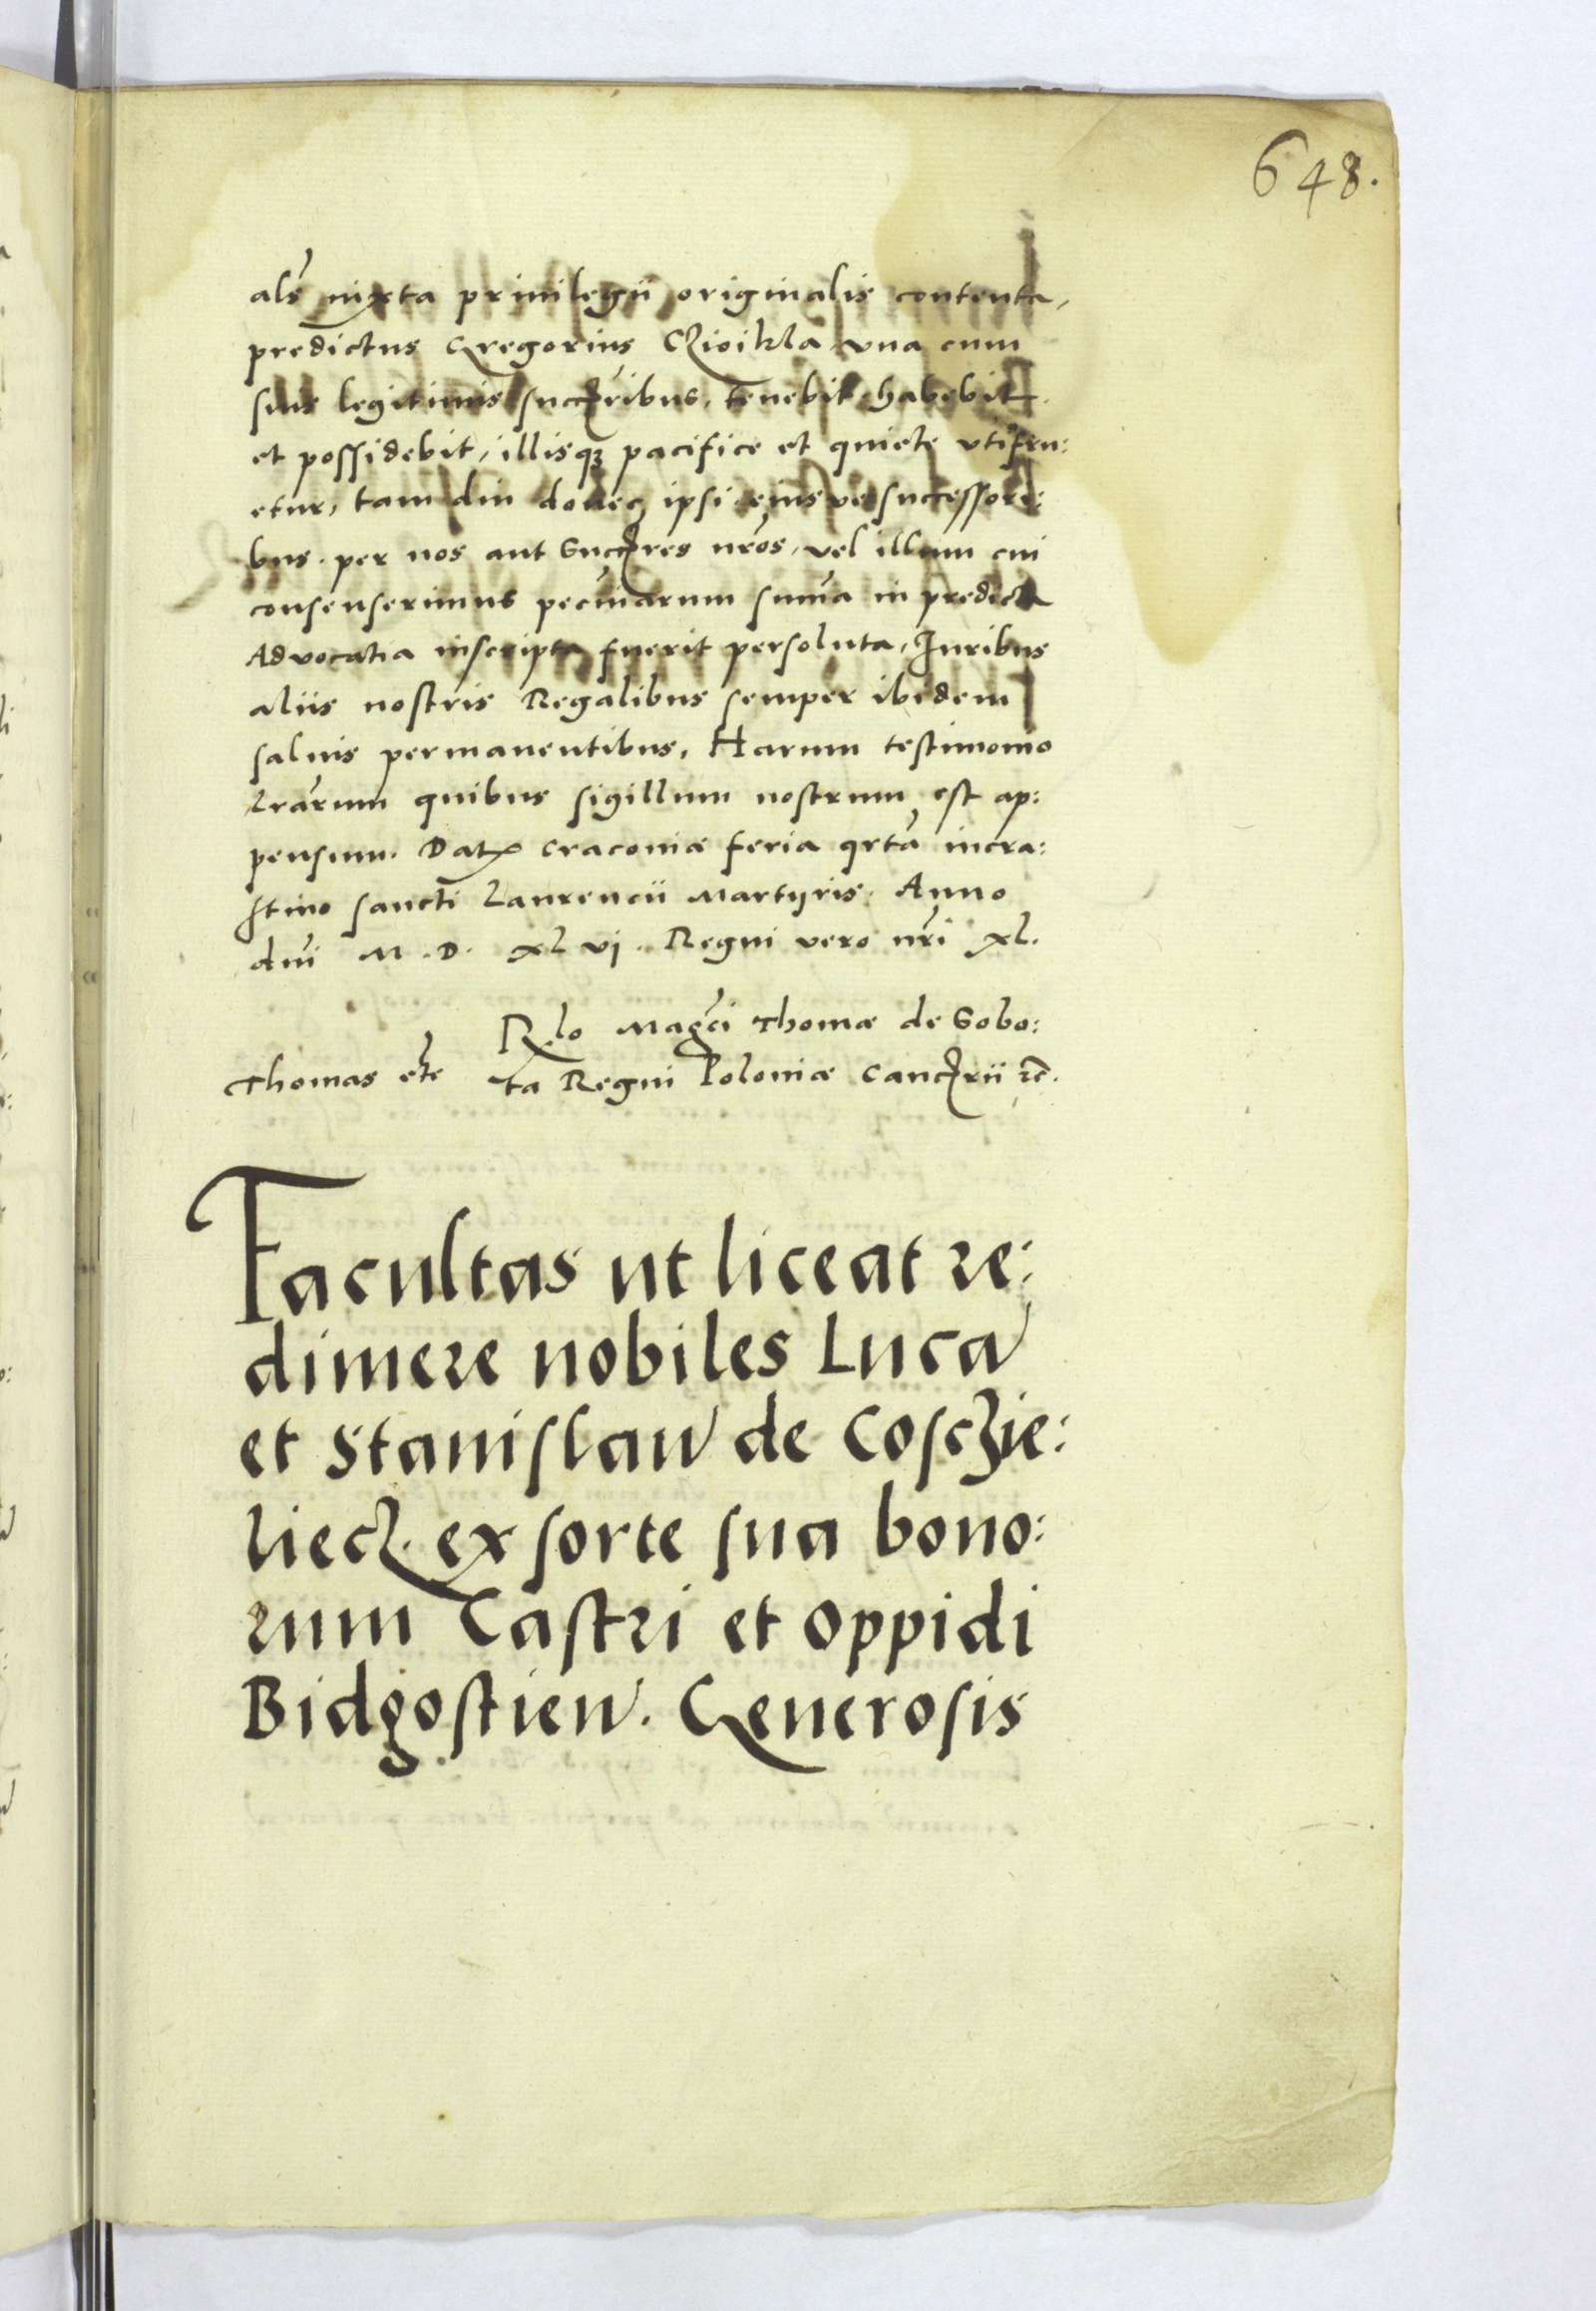 648.
alr̃ iuxta priuilegii originalis contenta,
predictus Gregorius Czioikla vna cum
suis legitimis succ̃ribus, tenebit habebit
et possidebit, illisqꝫ pacifice et quiete vtifru:
etur, tam diu donec ipsi eiusve successori:
bus. per nos aut succ̃res nr̃os, vel illum cui
consenserimus pecuniarum sum̃a in predicta
Advocatia inscripta fuerit persoluta, Iuribus
aliis nostris Regalibus semper ibidem
saluis permanentibus, Harum testimonio
Lrãrum quibus sigillum nostrum est ap:
pensum. Datꝭ Cracoviæ feria qrta incra:
stino sancti Laurencii Martyris. Anno
dnĩ M. D. XL vj. Regni vero nr̃i xl.
Rlo Magc̃i Thomæ de Sobo:
Thomas etc̃ ta Regni Poloniæ Canc̃rii ꝛc̃.
Facultas ut liceat re:
dimere nobiles Luca
et Stanislaw de Cosczie:
liecz. ex sorte sua bono:
rum Castri et oppidi
Bidgostien. Generosis